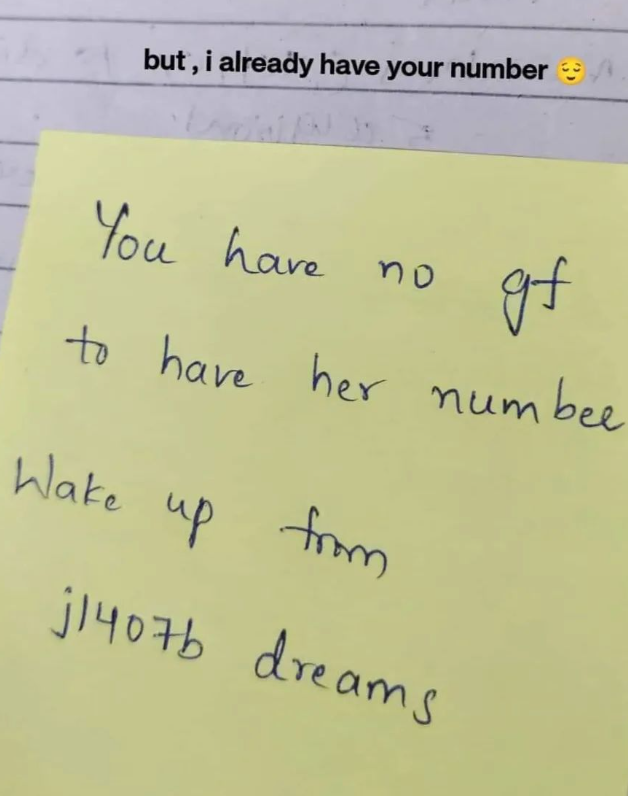 but , i already have your number 😌
You have no gf
to have her numbee
Wake up from
j1407b dreams